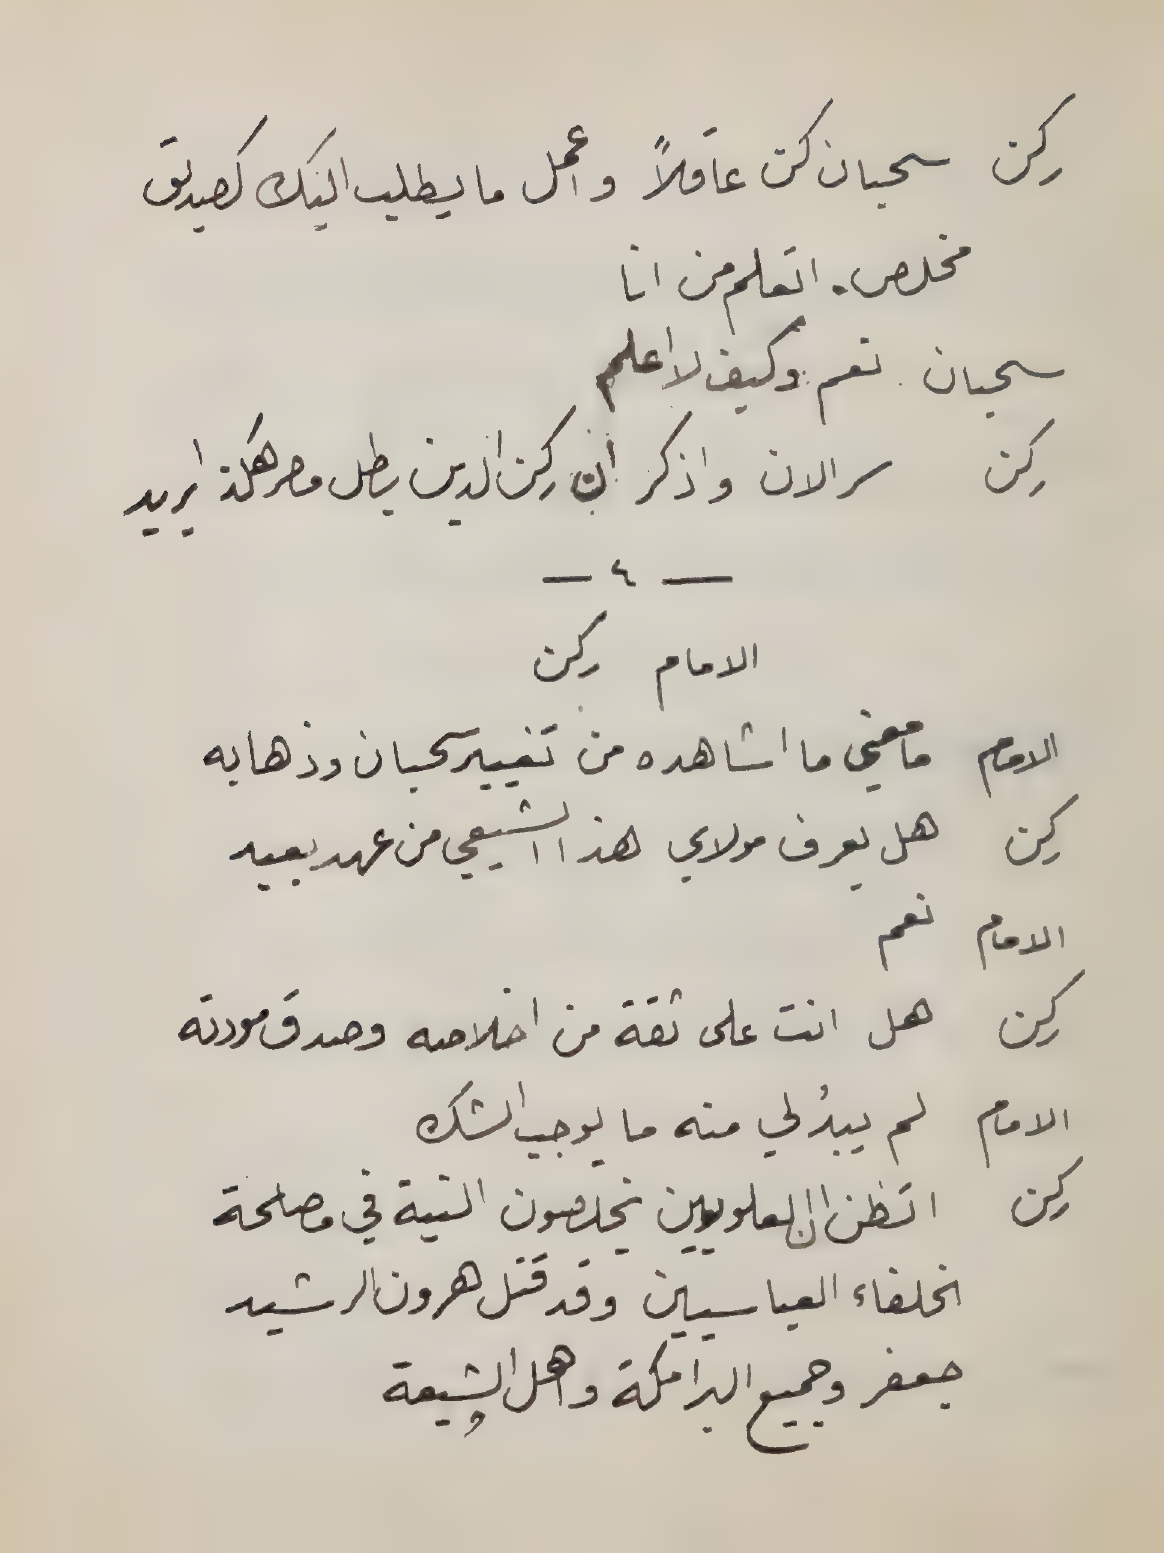 ركن سحبان كن عاقلاً واعمل ما يطلب اليك كصديق
مخلص. اتعلم من انا
سحبان نعم وكيف لا اعلم
ركن سر الان واذكر ان ركن الدين بطل ومهلكة يريد
— ٤ —
الامام ركن
الامام ما معنى ما اشاهده من تغيير سحبان وذهابه
ركن هل يعرف مولاي هذا الشيعي من عهد بعيد
الامام نعم
ركن هل انت على ثقة من اخلاصه وصدق مودته
الامام لم يبدُ لي منه ما يوجب الشك
ركن اتظن ان العلويين يخلصون النية في مصلحة
الخلفاء العباسيين وقد قتل هرون الرشيد
جعفر وجميع البرامكة واهل الشيعة